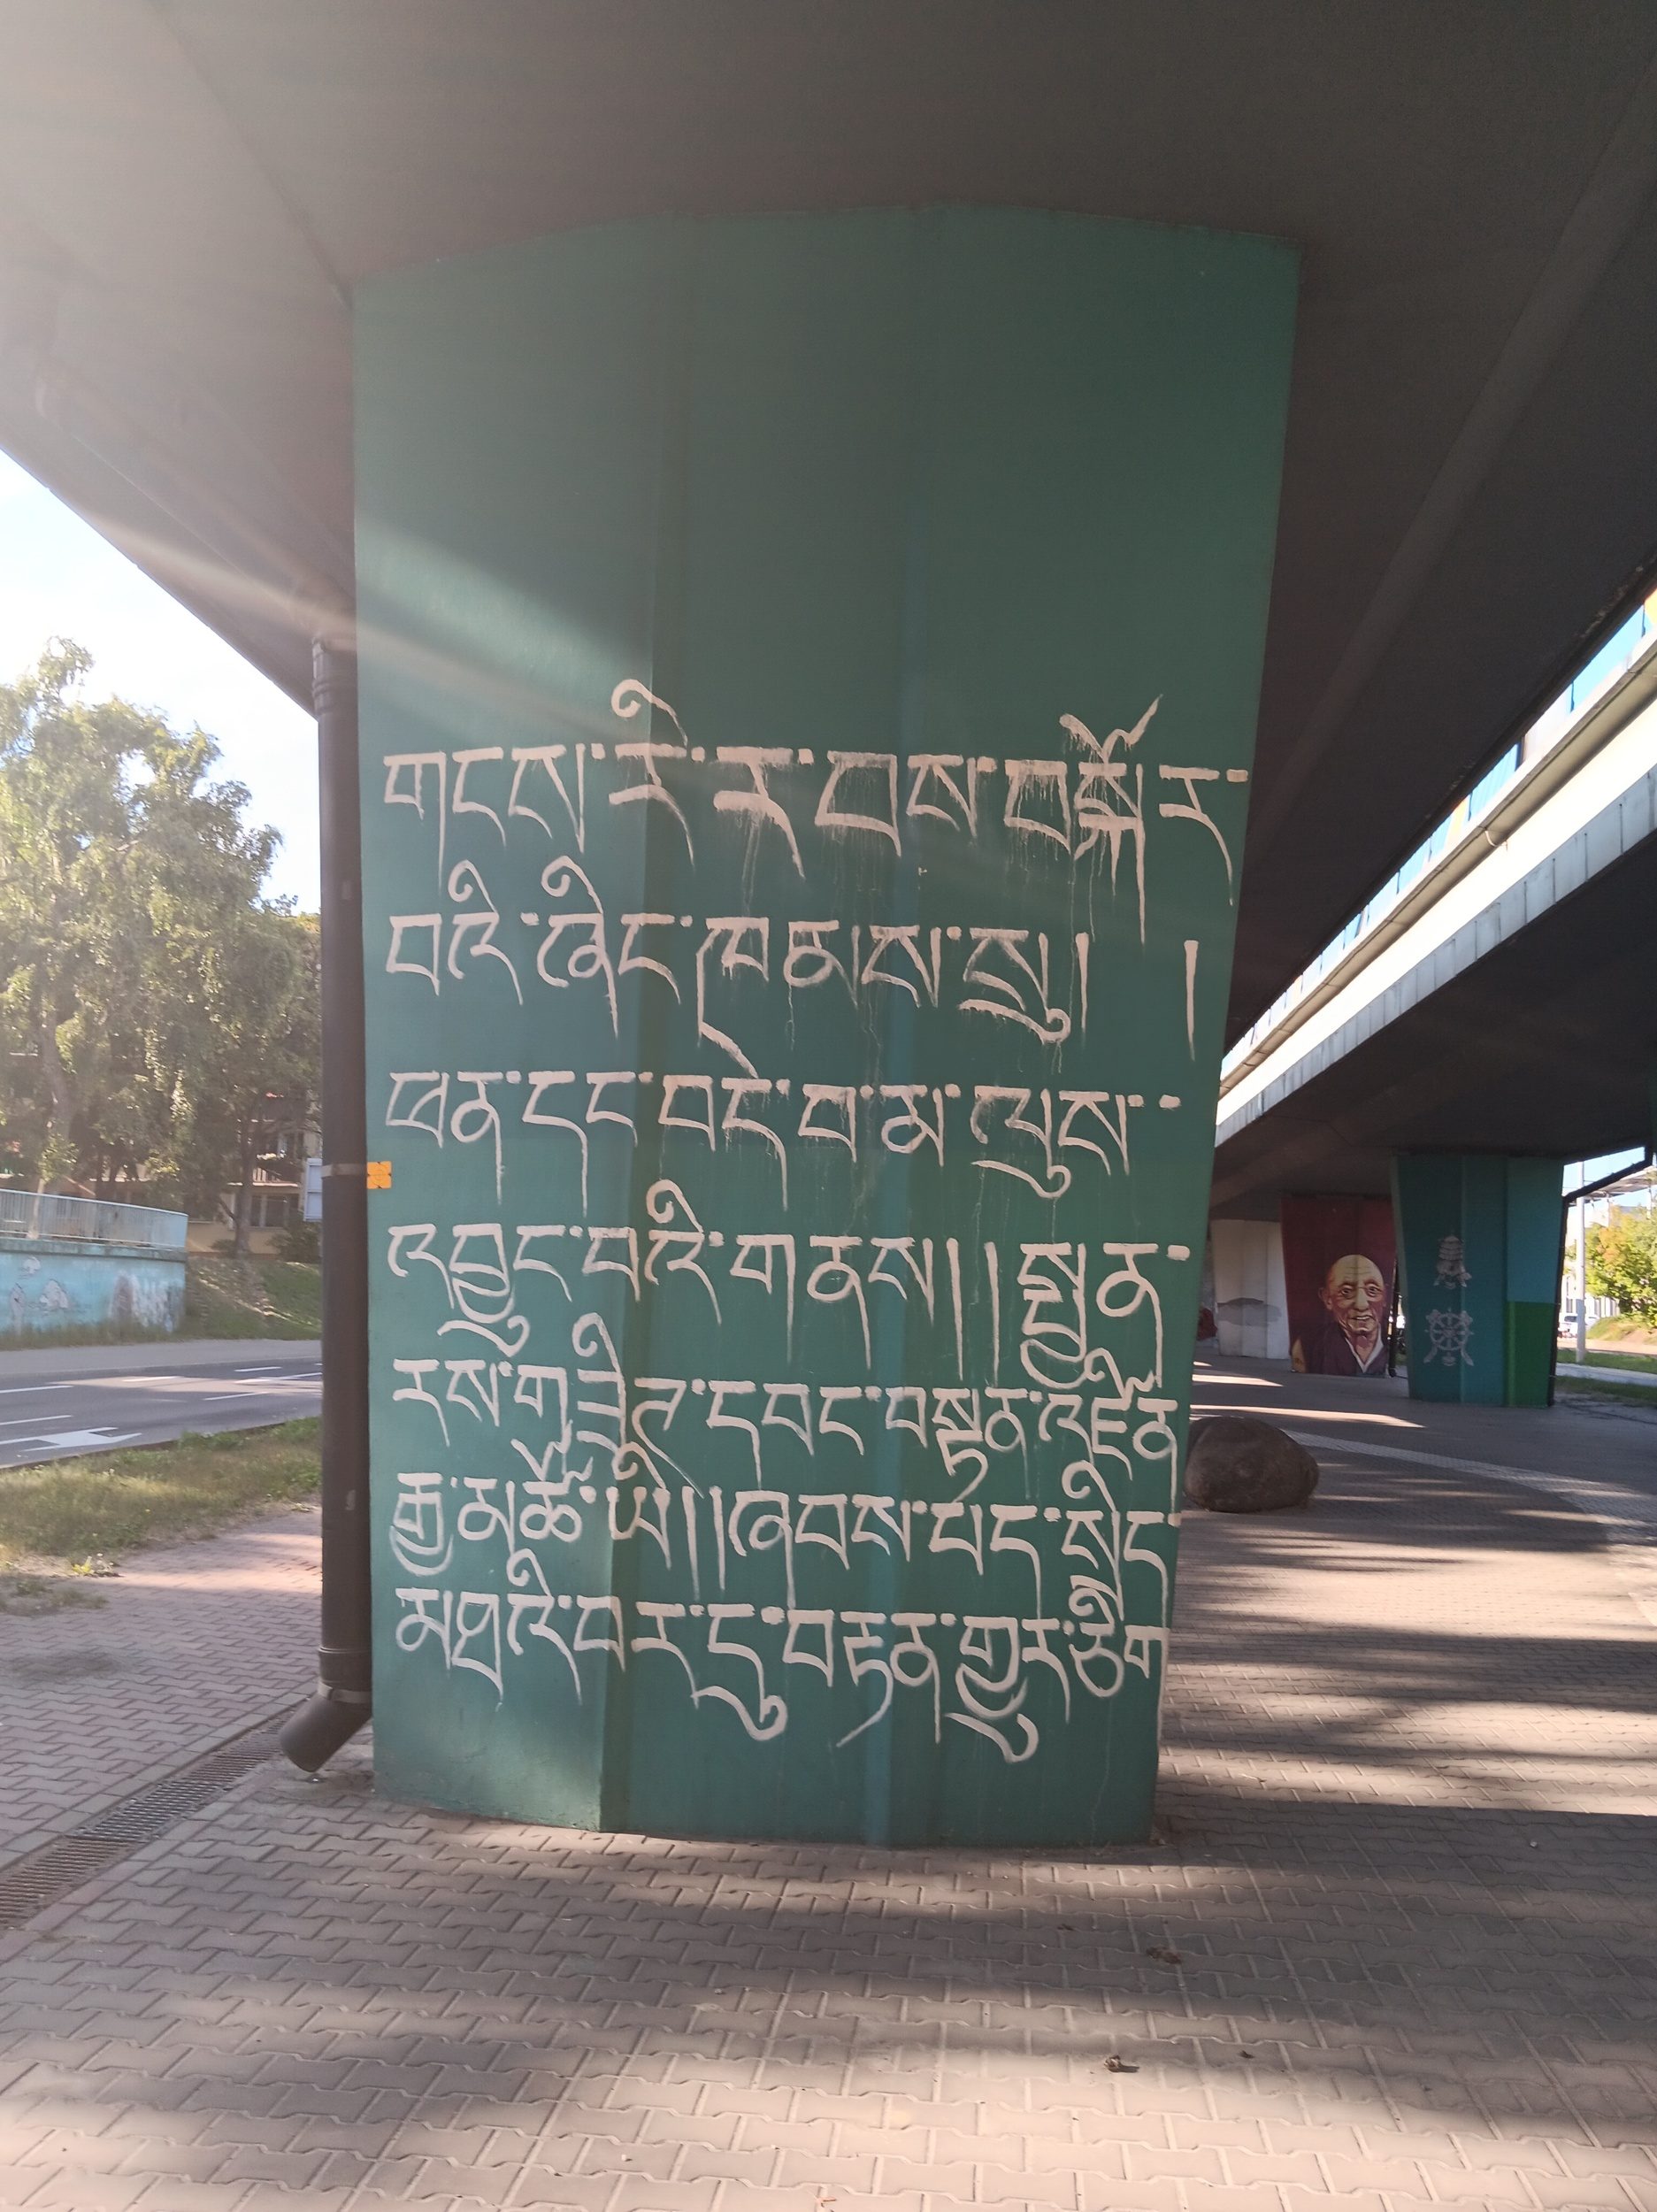 གངས་རི་ར་བས་བསྐོར་
བའི་ཞིང་ཁམས་སུ། །
ཕན་དང་བདེ་བ་མ་ལུས་
འབྱུང་བའི་གནས། །སྤྱན་
རས་གཟིག་དབང་བསྟན་འཛིན
རྒྱ་མཚོ་ཡི། །ཞབས་པད་སྲིད་
མཐའི་བར་དུ་བརྟན་གྱུར་ཅིག